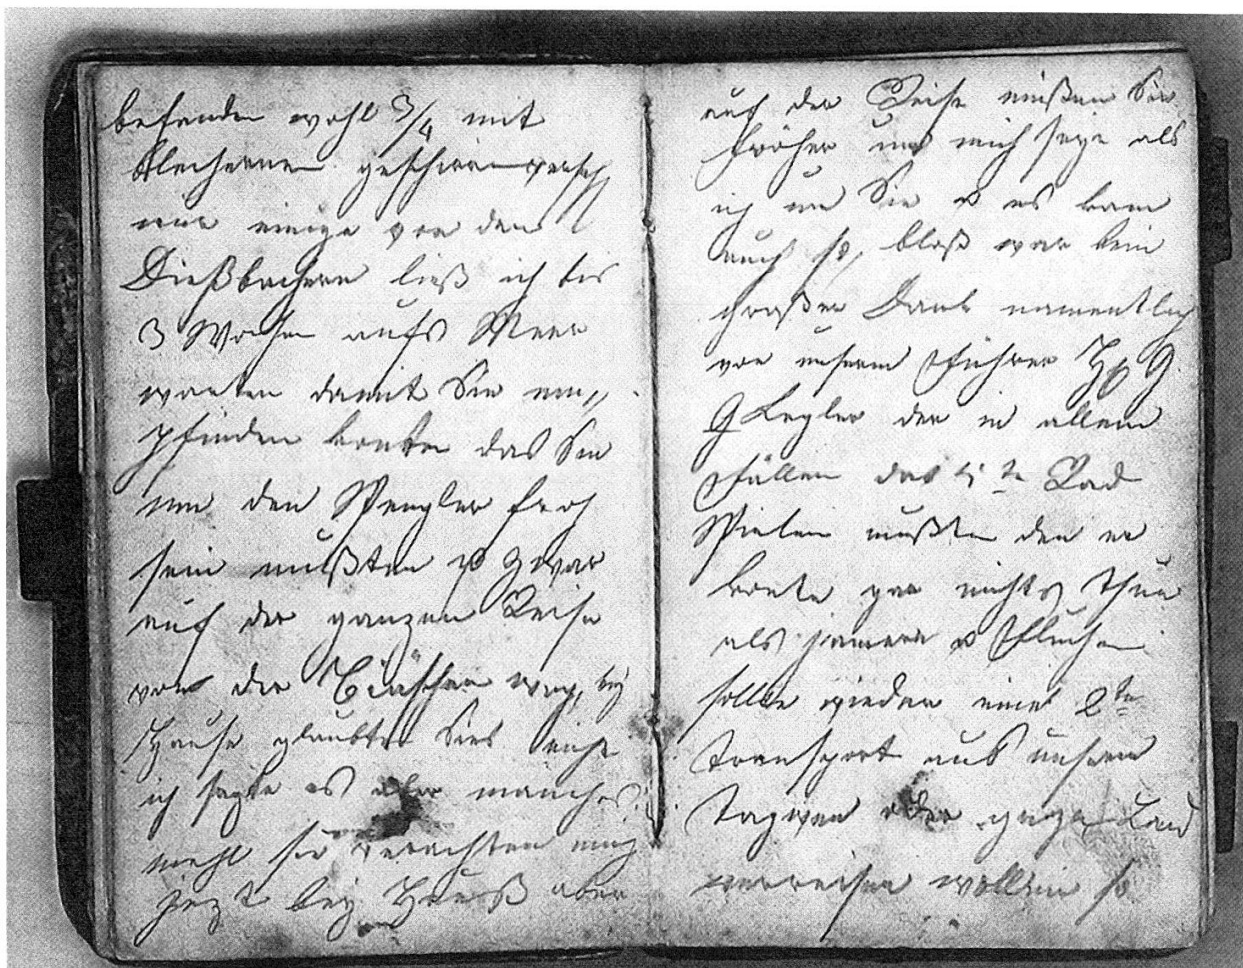 befanden wohl 3/4 mit
blechernen geschirr versehen
nur einige von den
Dießbachern ließ ich bis
3 Wochen aufs Meer
warten damit Sie em„
pfinden konten das Sie
um den Spengler froh
sein mußten u zwar
auf der ganzen Reise
von der weg, bey
Hause glaubten Sies nicht
ich sagte es aber manches
mahl sie verachten mich
jezt bey Hauß aber
auf der Reise müßen Sie
fröher um mich seye als
ich um Sie u es kam
auch so, bloß war kein
großer Dank namentlich
von unserm Führer H G.
G Legler der in allem
Fällen das te Rad
Spielen mußte den er
konte gar nichts Thun
als jamern u Fluchen
sollte wieder eine 2te
Transport aus unserm
Tagwen oder ganze Land
verreisen wollen so